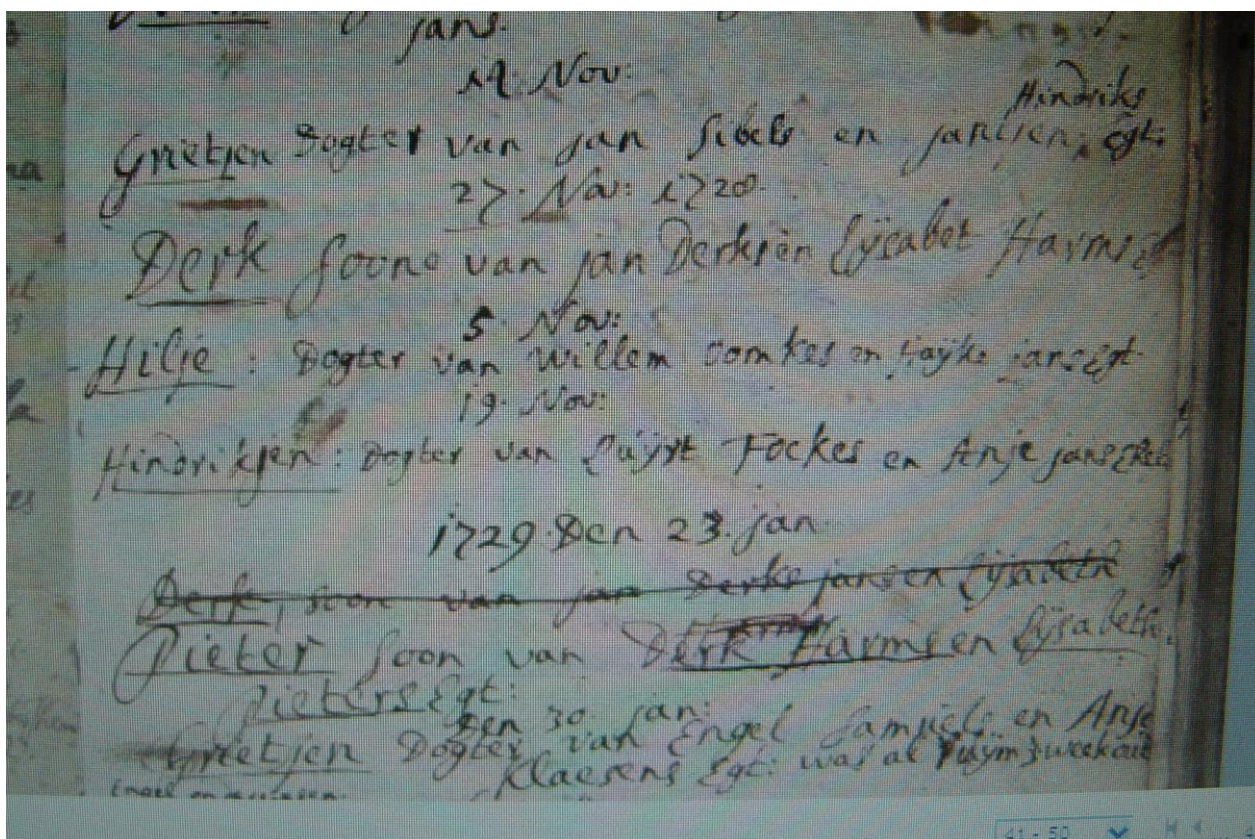 jans.
14. Nov:
Hindriks
Grietjen Dogter van jan Sibels en jantien, Egt:
27. Nov: 1728.
Derk soone van jan Derks en Lijsabet Harms Egt
5. Nov:
Hilje: Dogter van Willem oomkes en jans Egt.
19. Nov:
Hindrikjen: Dogter van Luijrt Fockes en Anje jans
1729. Den 23. jan
Derk, soon van jan Derks jansen Lijsabeth
Harms
Pieter soon van Derk Harms en Lijsabeth
Pieters Egt:
Den 30. jan:
Grietjen Dogter van Engel Samuels en Anje
Klaesens Egt: was al Ruijm 3 week out
41 - 50